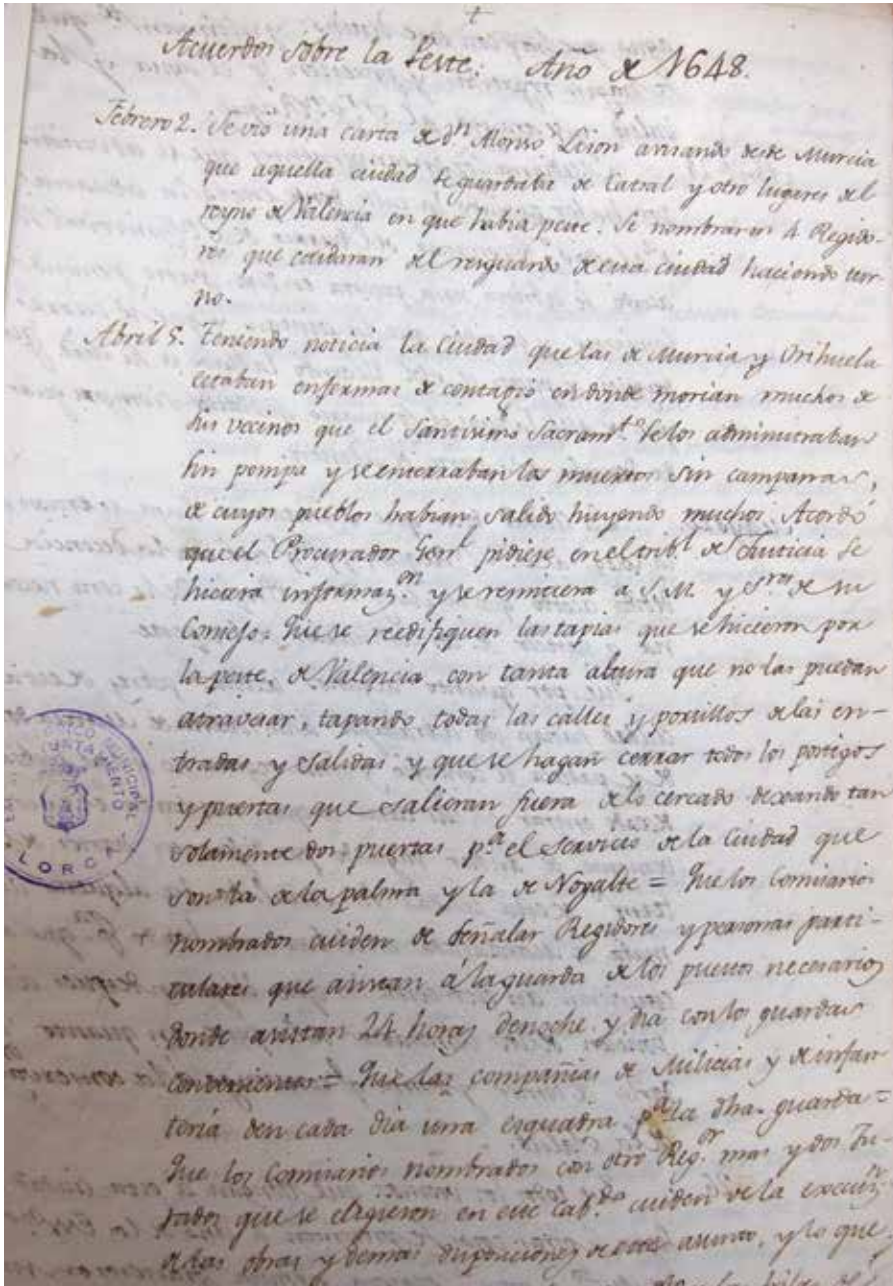 +
Acuerdos sobre la Peste. Año de 1648.
Febrero 2. Se vio una carta de dn Alonso Leson avisando desde Murcia
que aquella ciudad se guardaba de Catral y otro lugares del
reyno de Valencia en que habia peste. Se nombraron 4 Regido-
res que cuidaran del resguardo de esta ciudad haciendo tur-
no.
Abril 5. Teniendo noticia la Ciudad que las de Murcia y Orihuela
estaban enfermas de contagio en donde morian muchos de
sus vecinos que el Santisimo Sacramto. se los administraban
sin pompa y se enterraban los muertos sin campanas,
de cuyos pueblos habian salido huyendo muchos. Acordó
que el Procurador Genl pidiese en el tribl de Justicia se
hiciera informazon y se remitiera a S.M. y Sres de su
Consejo. Que se reedifiquen las tapias que se hicieron por
la peste de Valencia con tanta altura que no las puedan
atravesar, tapando todas las calles y portillos de las en-
tradas y salidas y que se hagan cerrar todos los postigos
y puertas que salieran fuera de lo cercado dexando tan
solamente dos puertas pa el servicio de la Ciudad que
son la de la palma y la de Nogalte = Que los Comisarios
nombrados cuiden de señalar Regidores y personas parti-
culares que asistan á la guarda de los puestos necesarios
donde asistan 24 horas de noche y dia con los guardas
convenientes = Que las compañias de Milicias y de infan-
teria den cada dia una esquadra pa la dha. guarda =
Que los Comisarios nombrados con otro Regor mas y dos Ju-
rados que se eligieron en este cabdo cuiden de la execuzn
de las obras y demas disposiciones de este asunto, y lo que
MUNICIPAL
AYUNTAMIENTO
LORCA